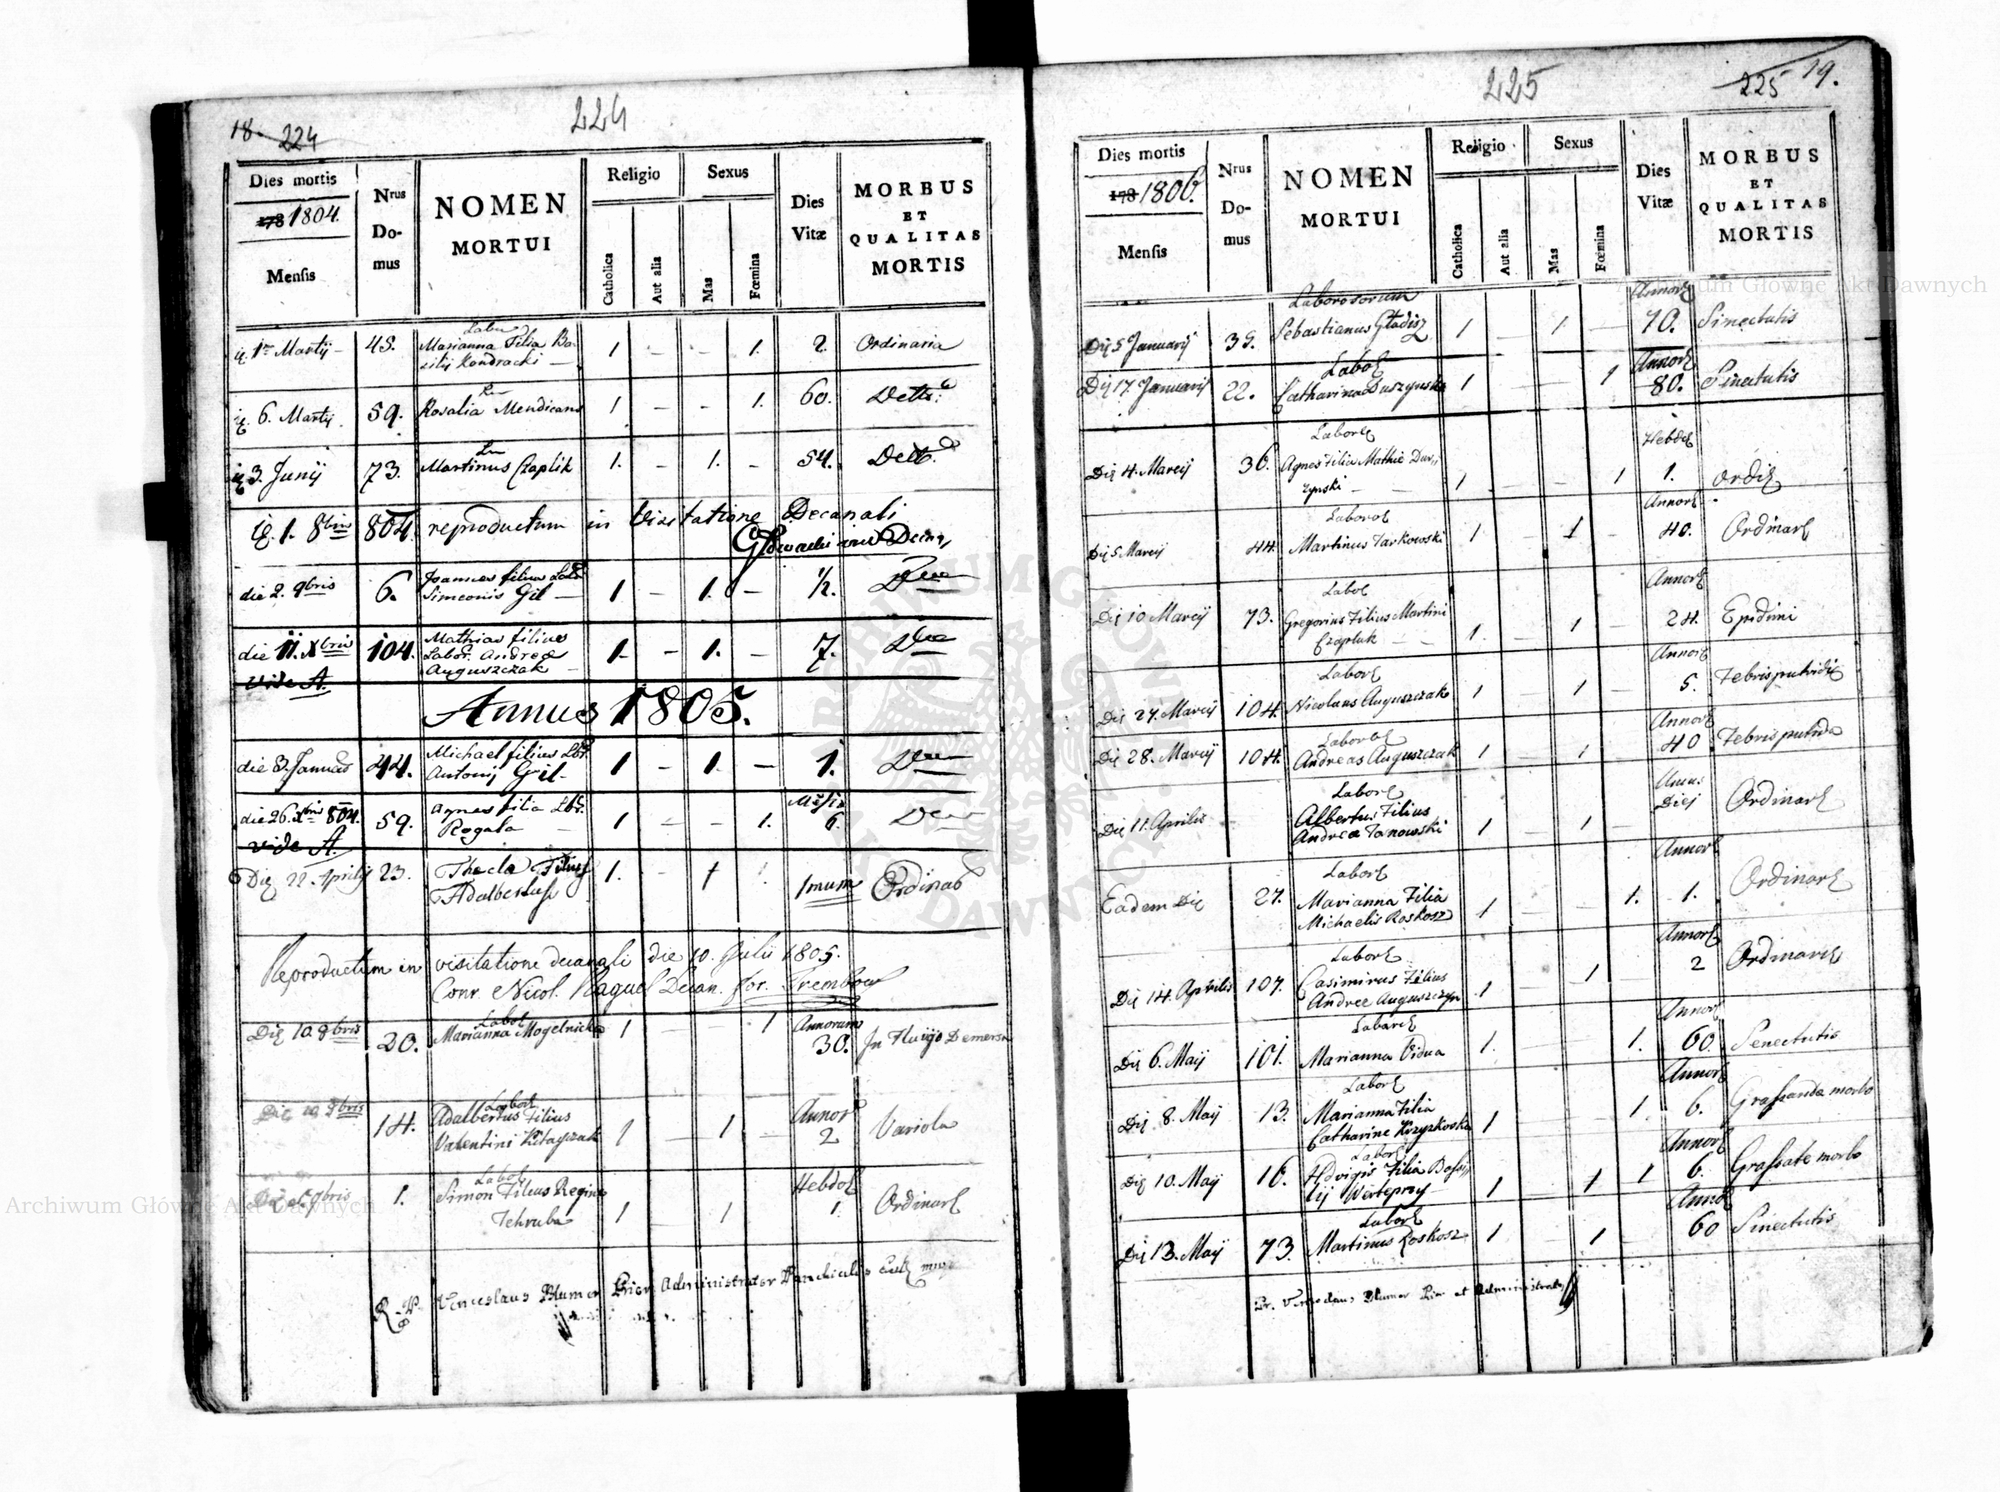 18. 224
224
Dies mortis
178 1804.
Mensis
Nrus Domus
NOMEN
MORTUI
Religio
Catholica
Aut alia
Sexus
Mas
Fœmina
Dies
Vitæ
MORBUS
ET
QUALITAS
MORTIS
1ma Martij 45. Marianna Filia Ba-
zilij Kondracki 1 - - 1. 2. Ordinaria
6. Martij 59. Rosalia Mendicans 1 - - 1. 60. Detto
3. Junij 73. Martinus Czaplik 1. - 1. - 54. Detto
1. 8bris 804. reproductum in Visitatione Decanali
die 2. 9bris 6. Joannes filius Labo
Simeonis Gil 1 - 1. - 1/2.
die 11. Xbris 104. Mathias filius
Labor. Andreæ
Auguszczak 1. - 1. - 7.
vide A.
Annus 1805.
die 8. Januar 44. Michael filius Lbr.
Antonij Gil 1 - 1. - 1.
die 26. Xbris 804. 59. Agnes filia Lbr.
Rogala 1 - - 1. 6.
vide A.
Die 22. Aprilis 23. Thecla
Adalberti 1. - 1 1mum
Reproductum in visitatione decanali die 10. Julii 1805.
Nicol. Decan. for. Trembow
Die 10. 8bris 20. Labor
Marianna Mogelnicka 1 1 Annorum
30. In Fluvjo Demersa
14. Labor
Adalbertus Filius
Valentini 1 - 1 - Annor
2 Variola
9bris 1. Labor
Simon Filius Regine
Tehruba 1 1 Hebdo
1. Ordinar
Venceslaus Blumer Prior Administrator
225
225 19.
Dies mortis
178 1806.
Mensis
Nrus
Domus
NOMEN
MORTUI
Religio
Catholica
Aut alia
Sexus
Mas
Fœmina
Dies
Vitæ
MORBUS
ET
QUALITAS
MORTIS
Die 5 Januarij 39. Laborosorum
Sebastianus Gładisz 1 1 - Annor
70. Sinectutis
Die 17. Januarij 22. Labor
Catharina Duszynska 1 1 Annor
80. Sinectutis
Die 4. Marcij 36. Labor
Agnes Filia Mathie Dus-
zynski 1 1 Hebdo
1. Ordi
Die 5 Marcij 44. Labor
Martinus Tarkowski 1 1 Annor
40. Ordinar
Die 10 Marcij 73. Labor
Gregorius Filius Martini
Czapluk 1 1 Annor
24. Epidimi
Die 27. Marcij 104. Labor
Nicolaus Auguszczak 1 1 Annor
5. Febris putrida
Die 28. Marcij 104. Labor
Andreas Auguszczak 1 1 Annor
40 Febris putrida
Die 11. Aprilis Labor
Albertus Filius
Andreæ Janowski 1 1 Unus
Diej Ordinar
Eadem Die 27. Labor
Marianna Filia
Michaelis Roskosz 1 1. Annor
1. Ordinar
Die 14. Aprilis 107. Labor
Casimirus Filius
Andree Auguszczyn 1 1 Annor
2 Ordinar
Die 6. Maij 101. Labor
Marianna Vidua 1. 1. Annor
60. Senectutis
Die 8. Maij 13. Labor
Marianna Filia
Catharine Krzyzkoska 1 1. Annor
6. Grassanda morbo
Die 10. Maij 16. Labor
Hedvigis Filia Bassi-
lij Werteprzy 1 1 1 Annor
6. Grassate morbo
Die 13. Maij 73. Labor
Martinus Roskosz 1 1 Annor
60 Sinectutis
Fr. Venceslaus Blumer Prior et Administrator
Archiwum Główne Akt Dawnych
Archiwum Główne Akt Dawnych
ARCHIWUM GŁÓWNE AKT DAWNYCH